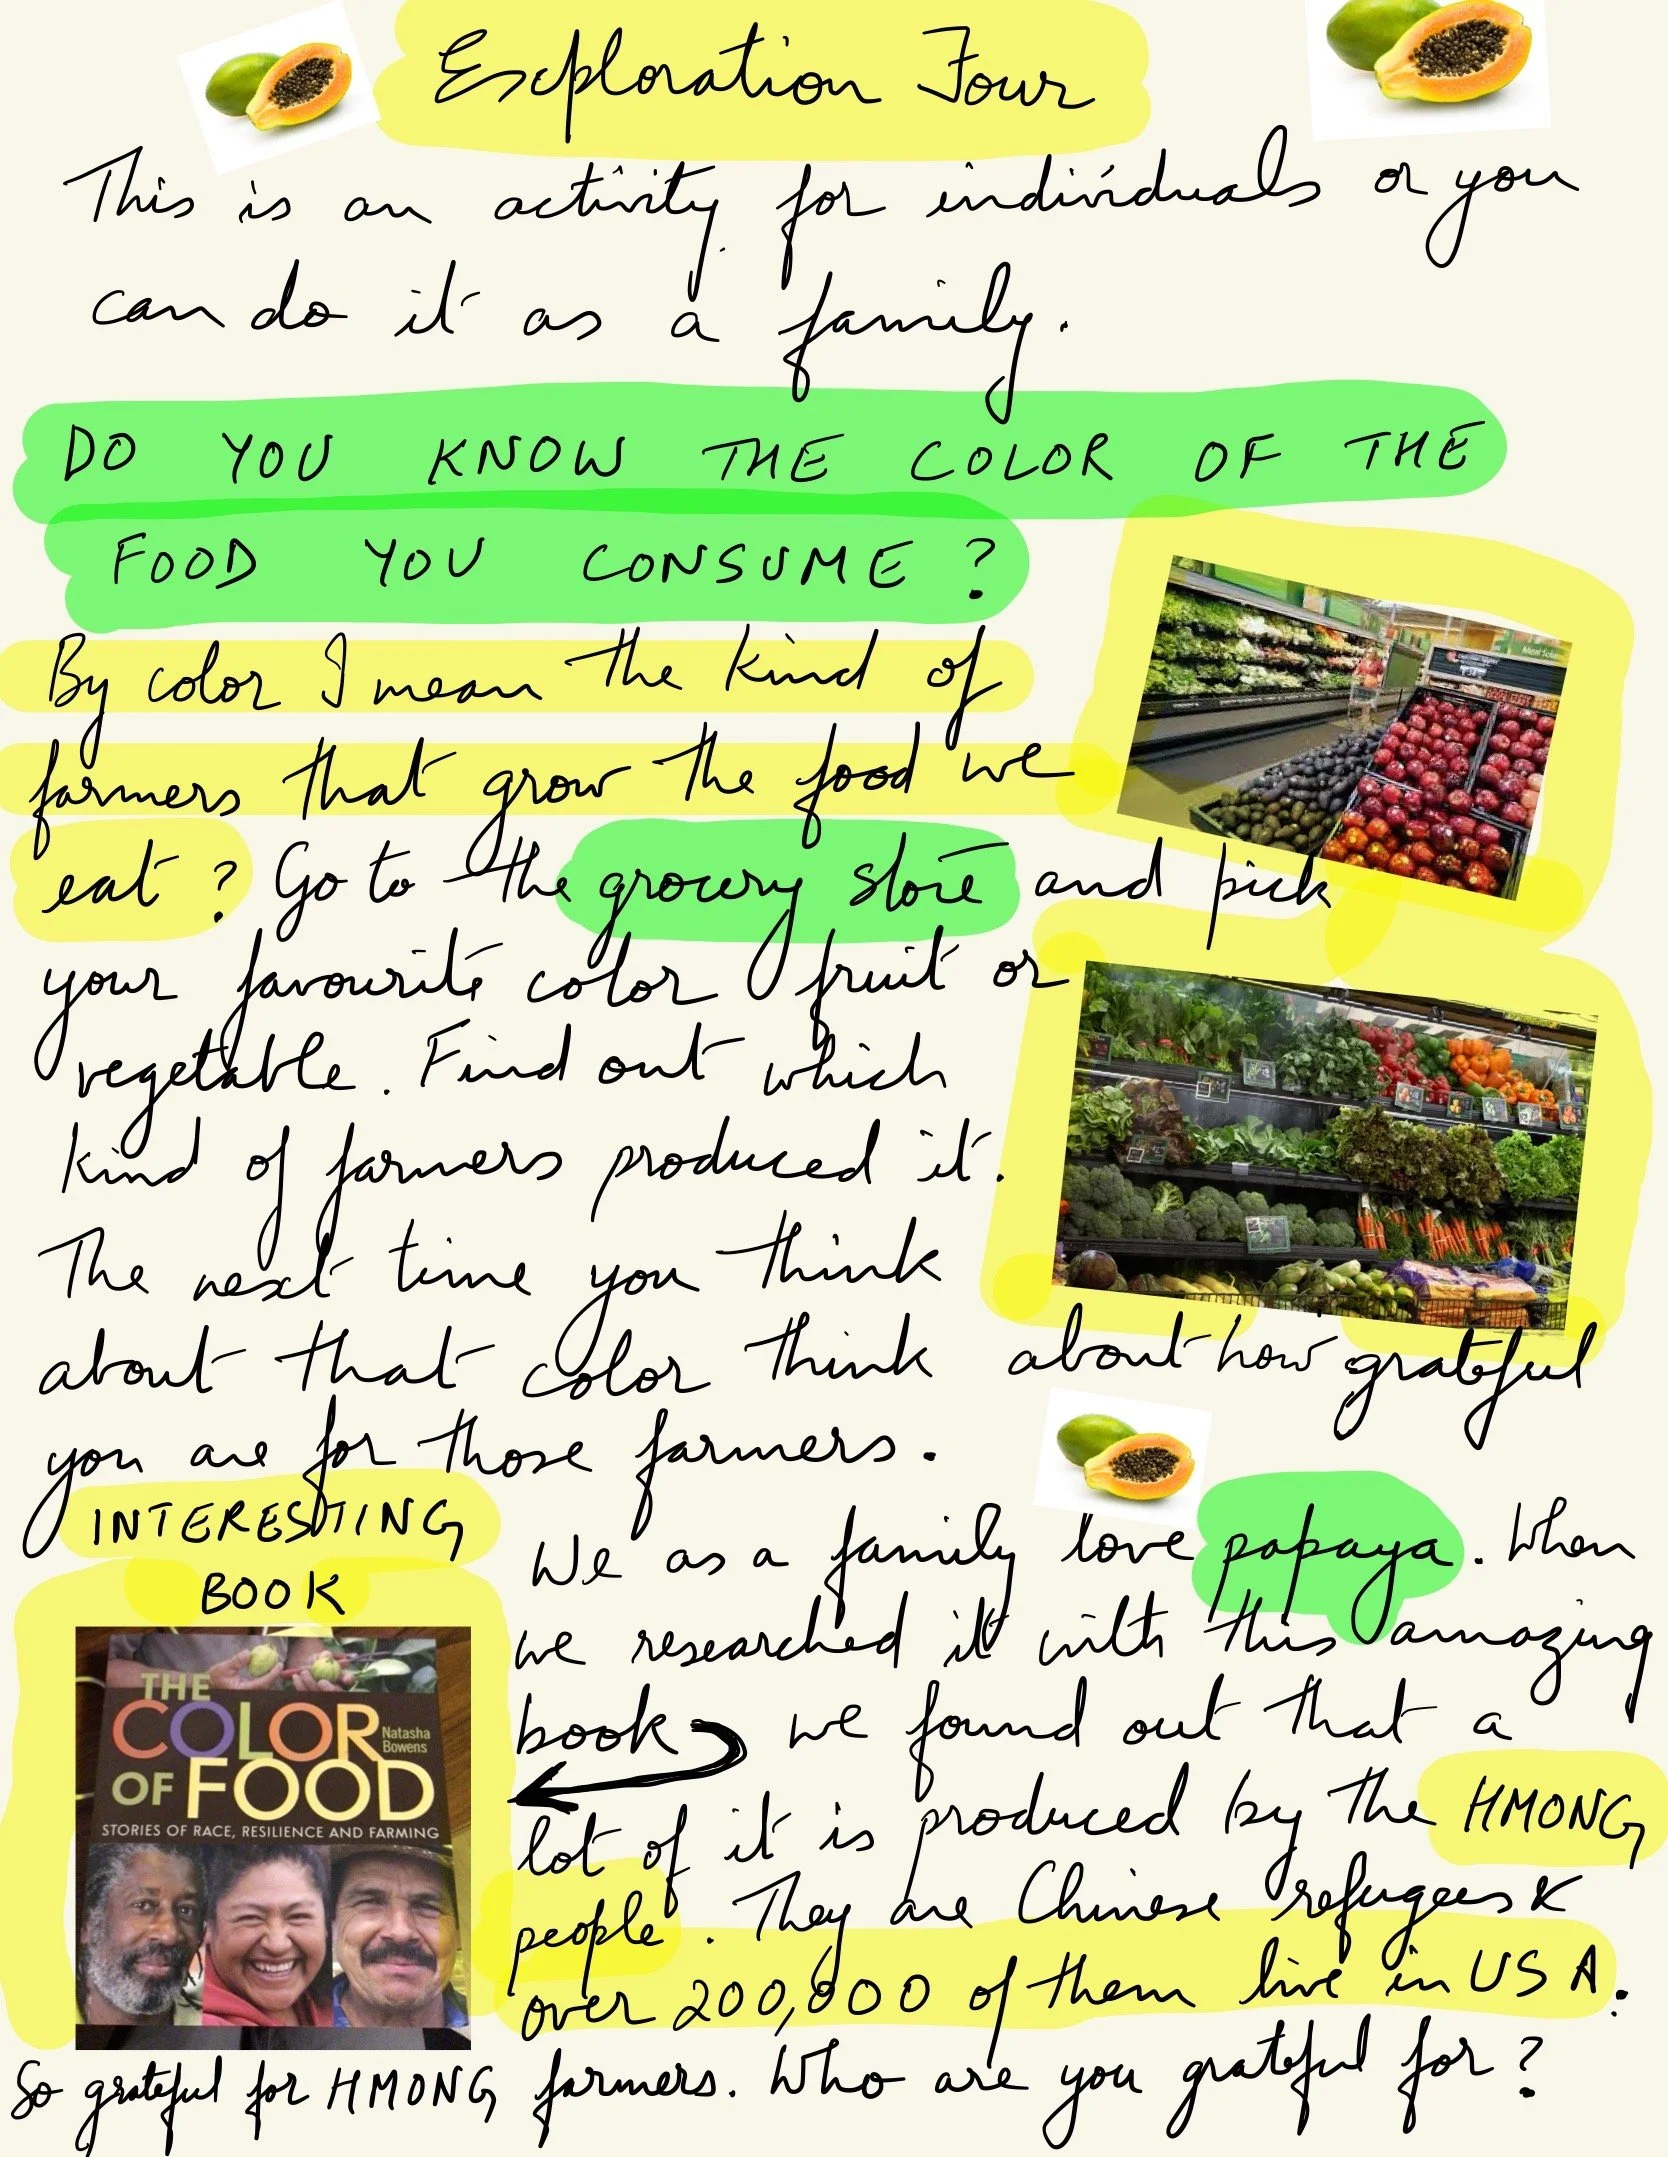 Exploration Four
This is an activity for individuals or you
can do it as a family.
DO YOU KNOW THE COLOR OF THE
FOOD YOU CONSUME?
By color I mean the kind of
farmers that grow the food we
eat? Go to the grocery store and pick
your favourite color fruit or
vegetable. Find out which
kind of farmers produced it.
The next time you think
about that color think about how grateful
you are for those farmers.
INTERESTING
BOOK
THE
COLOR
OF FOOD
Natasha
Bowens
STORIES OF RACE, RESILIENCE AND FARMING
We as a family love papaya. When
we researched it with this amazing
book we found out that a
lot of it is produced by the HMONG
people. They are Chinese refugees &
over 200,000 of them live in USA.
So grateful for HMONG farmers. Who are you grateful for?